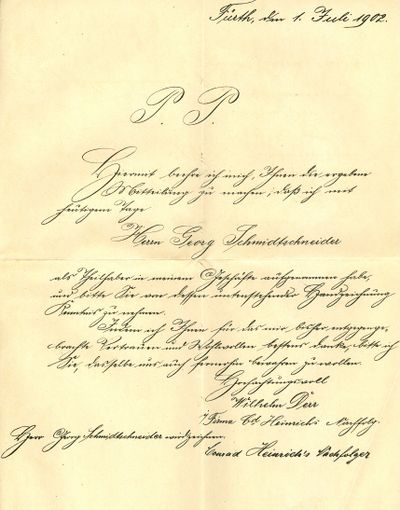 Fürth, den 1. Juli 1902.
P. P.
Hiermit beehre ich mich, Ihnen die ergebene
Mitteilung zu machen, daß ich mit
heutigem Tage
Herrn Georg Schmidtschneider
als Theilhaber in meinem Geschäfte aufgenommen habe,
und bitte Sie von dessen untenstehender Handzeichnung
Kenntnis zu nehmen.
Indem ich Ihnen für das mir bisher entgegenge-
brachte Vertrauen und Wohlwollen bestens danke, bitte ich
Sie, dasselbe uns auch fernerhin bewahren zu wollen.
Hochachtungsvoll
Wilhelm Derr
Firma Cd. Heinrichs Nachfolg.
Herr Georg Schmidtschneider wird zeichnen:
Conrad Heinrich's Nachfolger